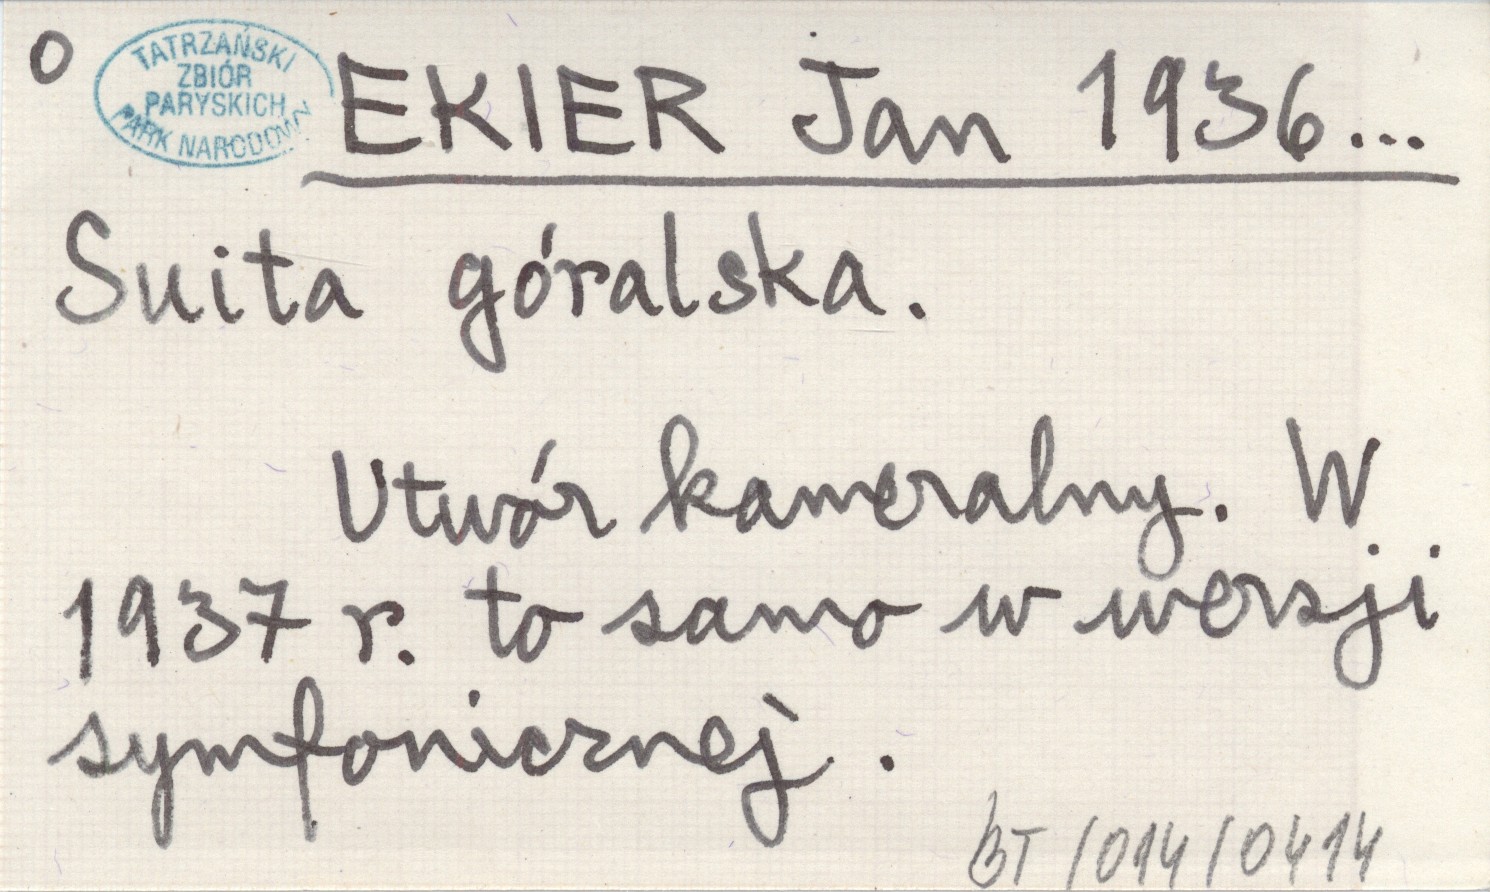 O
TATRZAŃSKI
ZBIÓR
PARYSKICH
PARK NARODOWY
EKIER Jan 1936...
Suita góralska.
Utwór kameralny. W
1937 r. to samo w wersji
symfonicznej.
BT/014/0414